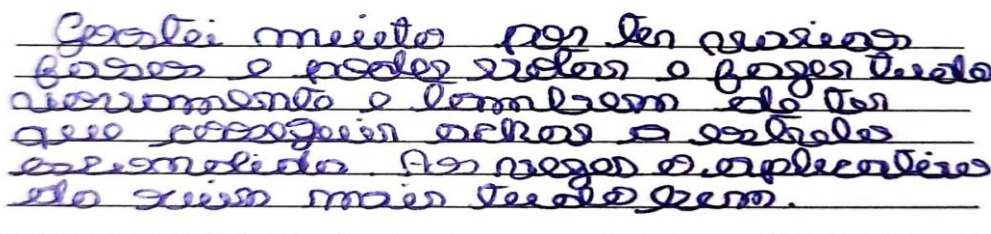 Gostei muito por ter varias
fases e poder voltar e fazer tudo
novamente e tambem de ter
que conseguir achar a estrela
escondida. As vezes o aplicativo
do ruim mais tudo bem.